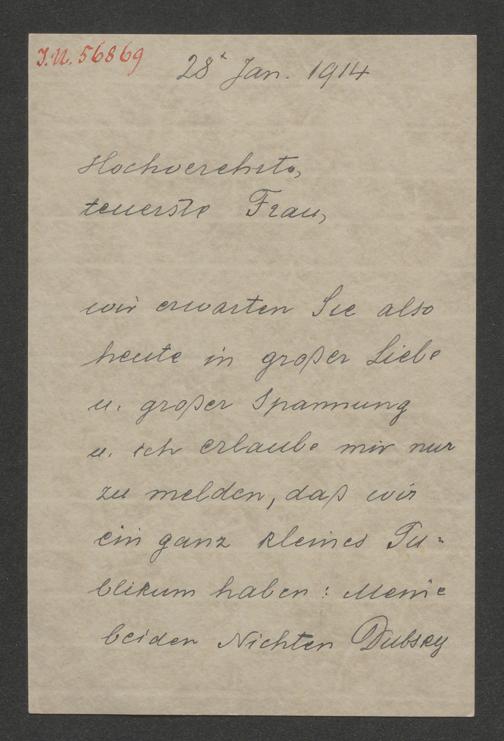 J.N. 56869
28t Jan. 1914
Hochverehrte,
teuerste Frau,
wir erwarten Sie also
heute in großer Liebe
u. großer Spannung
u. ich erlaube mir nur
zu melden, daß wir
ein ganz kleines Pu=
blikum haben: Meine
beiden Nichten Dubsky